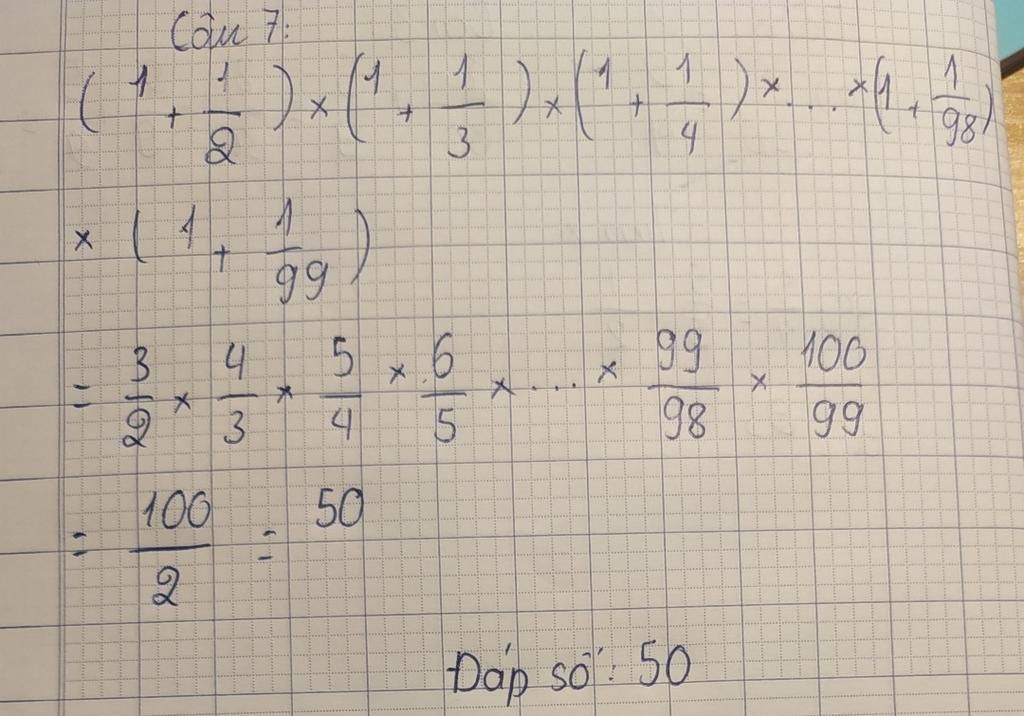 Câu 7:
( 1 + 1/2 ) × ( 1 + 1/3 ) × ( 1 + 1/4 ) × .... × ( 1 + 1/98 )
× ( 1 + 1/99 )
= 3/2 × 4/3 × 5/4 × 6/5 × .... × 99/98 × 100/99
= 100/2 = 50
Đáp số: 50